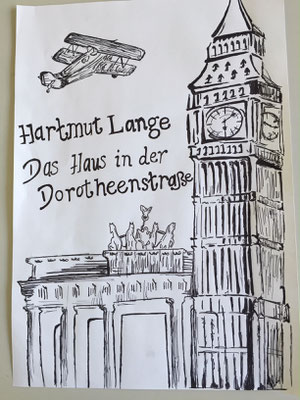 Hartmut Lange
Das Haus in der
Dorotheenstraße